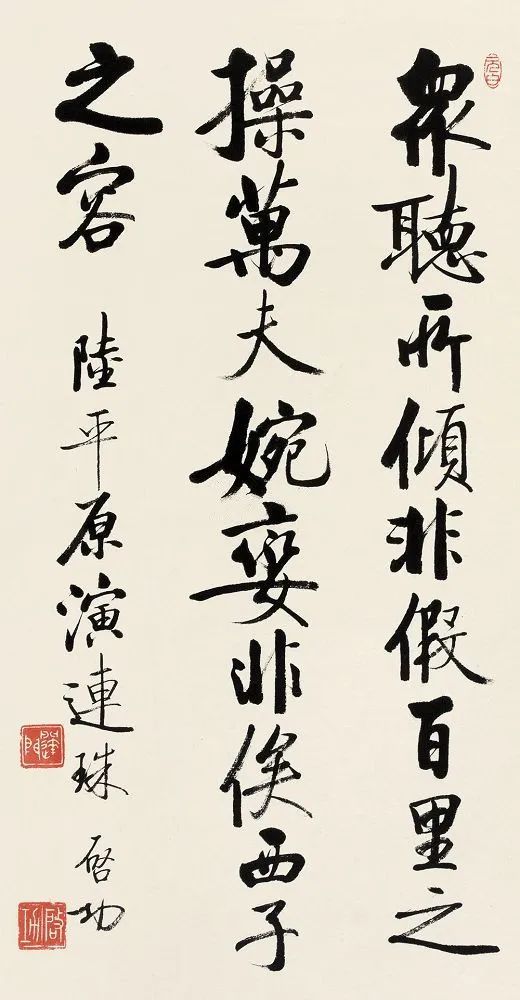 眾聴所傾非假百里之
操萬夫婉孌非俟西子
之容 陸平原演連珠 啓功
啓功